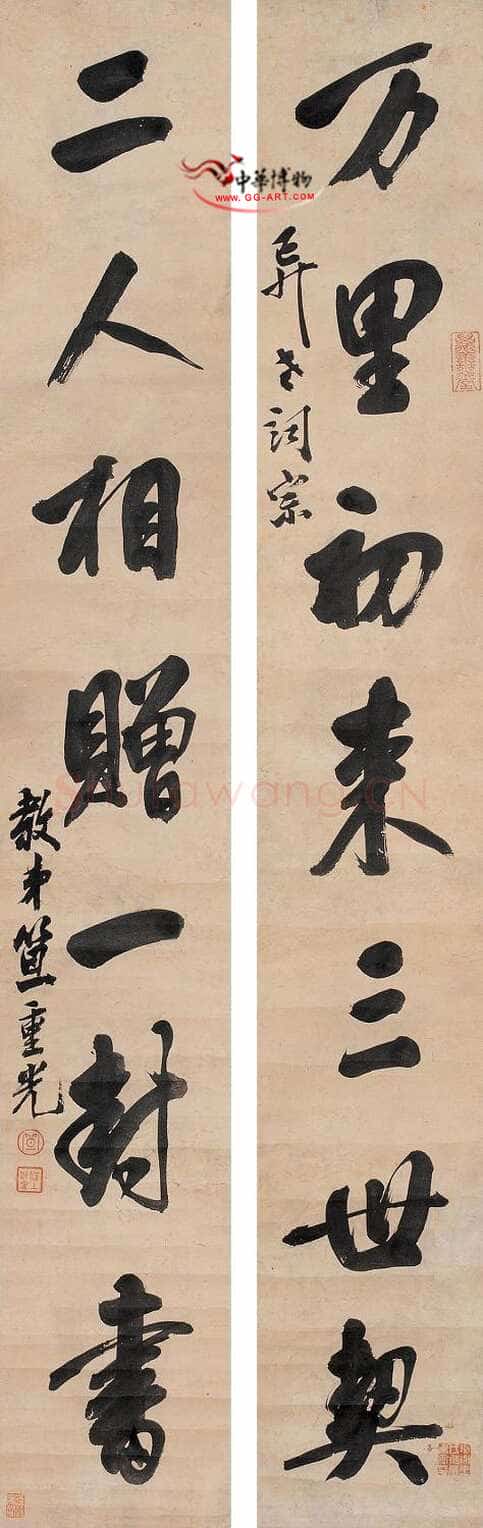 万里初来三世契
弄老词宗
二人相贈一封書
教弟笪重光
中華博物
WWW.GG-ART.COM